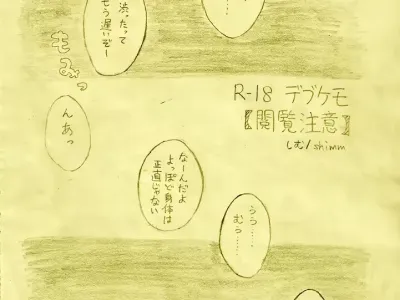 う……
渋ったって
もう遅いぞー
もみっ
んあっ
R-18 デブケモ
【閲覧注意】
しむ/shimm
なーんだよ
よっぽど身体は
正直じゃない
うう……
むぅ……